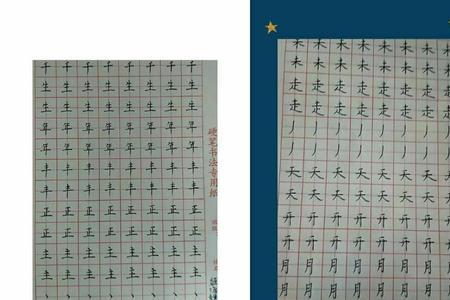 千 千 千 千 千 千 千
生 生 生 生 生 生 生
生 生 生 生 生 生 生
年 年 年 年 年 年 年
年 年 年 年 年 年 年
丰 丰 丰 丰 丰 丰 丰
丰 丰 丰 丰 丰 丰 丰
正 正 正 正 正 正 正
正 正 正 正 正 正 正
主 主 主 主 主 主 主
主 主 主 主 主 主 主
硬笔书法专用纸
未 未 未 未 未 未 未 未
未 未 未 未 未 未 未 未
走 走 走 走 走 走 走 走
走 走 走 走 走 走 走 走
丿 丿 丿 丿 丿 丿 丿 丿
丿 丿 丿 丿 丿 丿 丿 丿
天 天 天 天 天 天 天 天
天 天 天 天 天 天 天 天
开 开 开 开 开 开 开 开
开 开 开 开 开 开 开 开
月 月 月 月 月 月 月 月
月 月 月 月 月 月 月 月